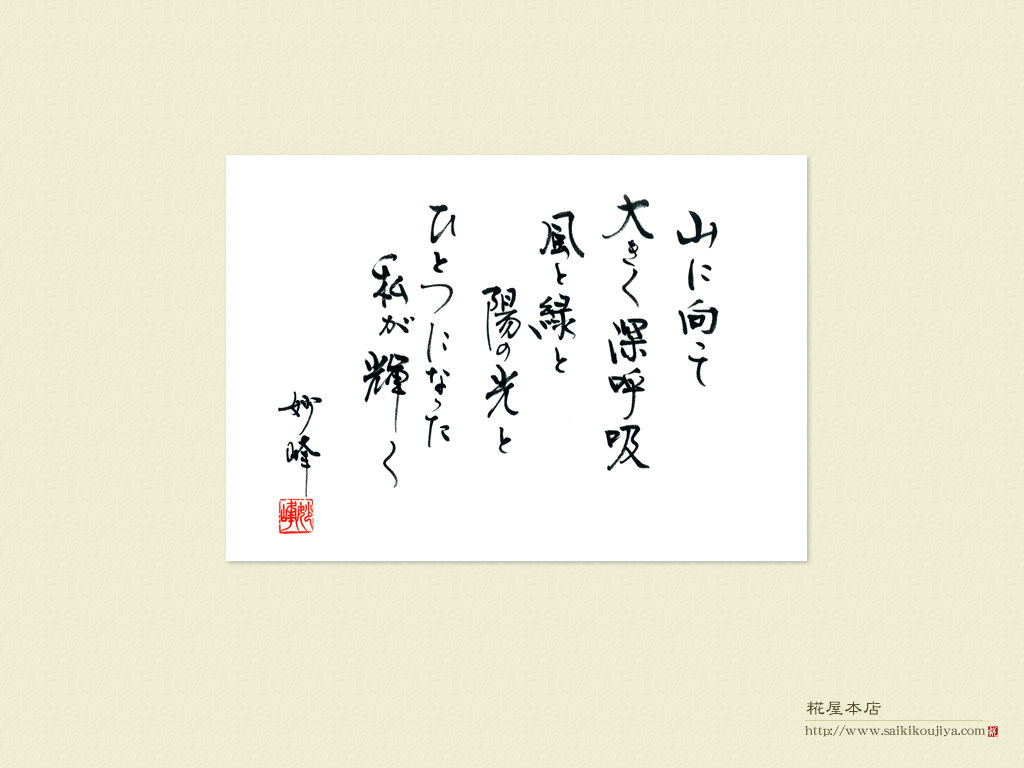 山に向って
大きく深呼吸
風と緑と
陽の光と
ひとつになった
私が輝く
妙峰
妙峰
糀屋本店
http://www.saikikoujiya.com
糀